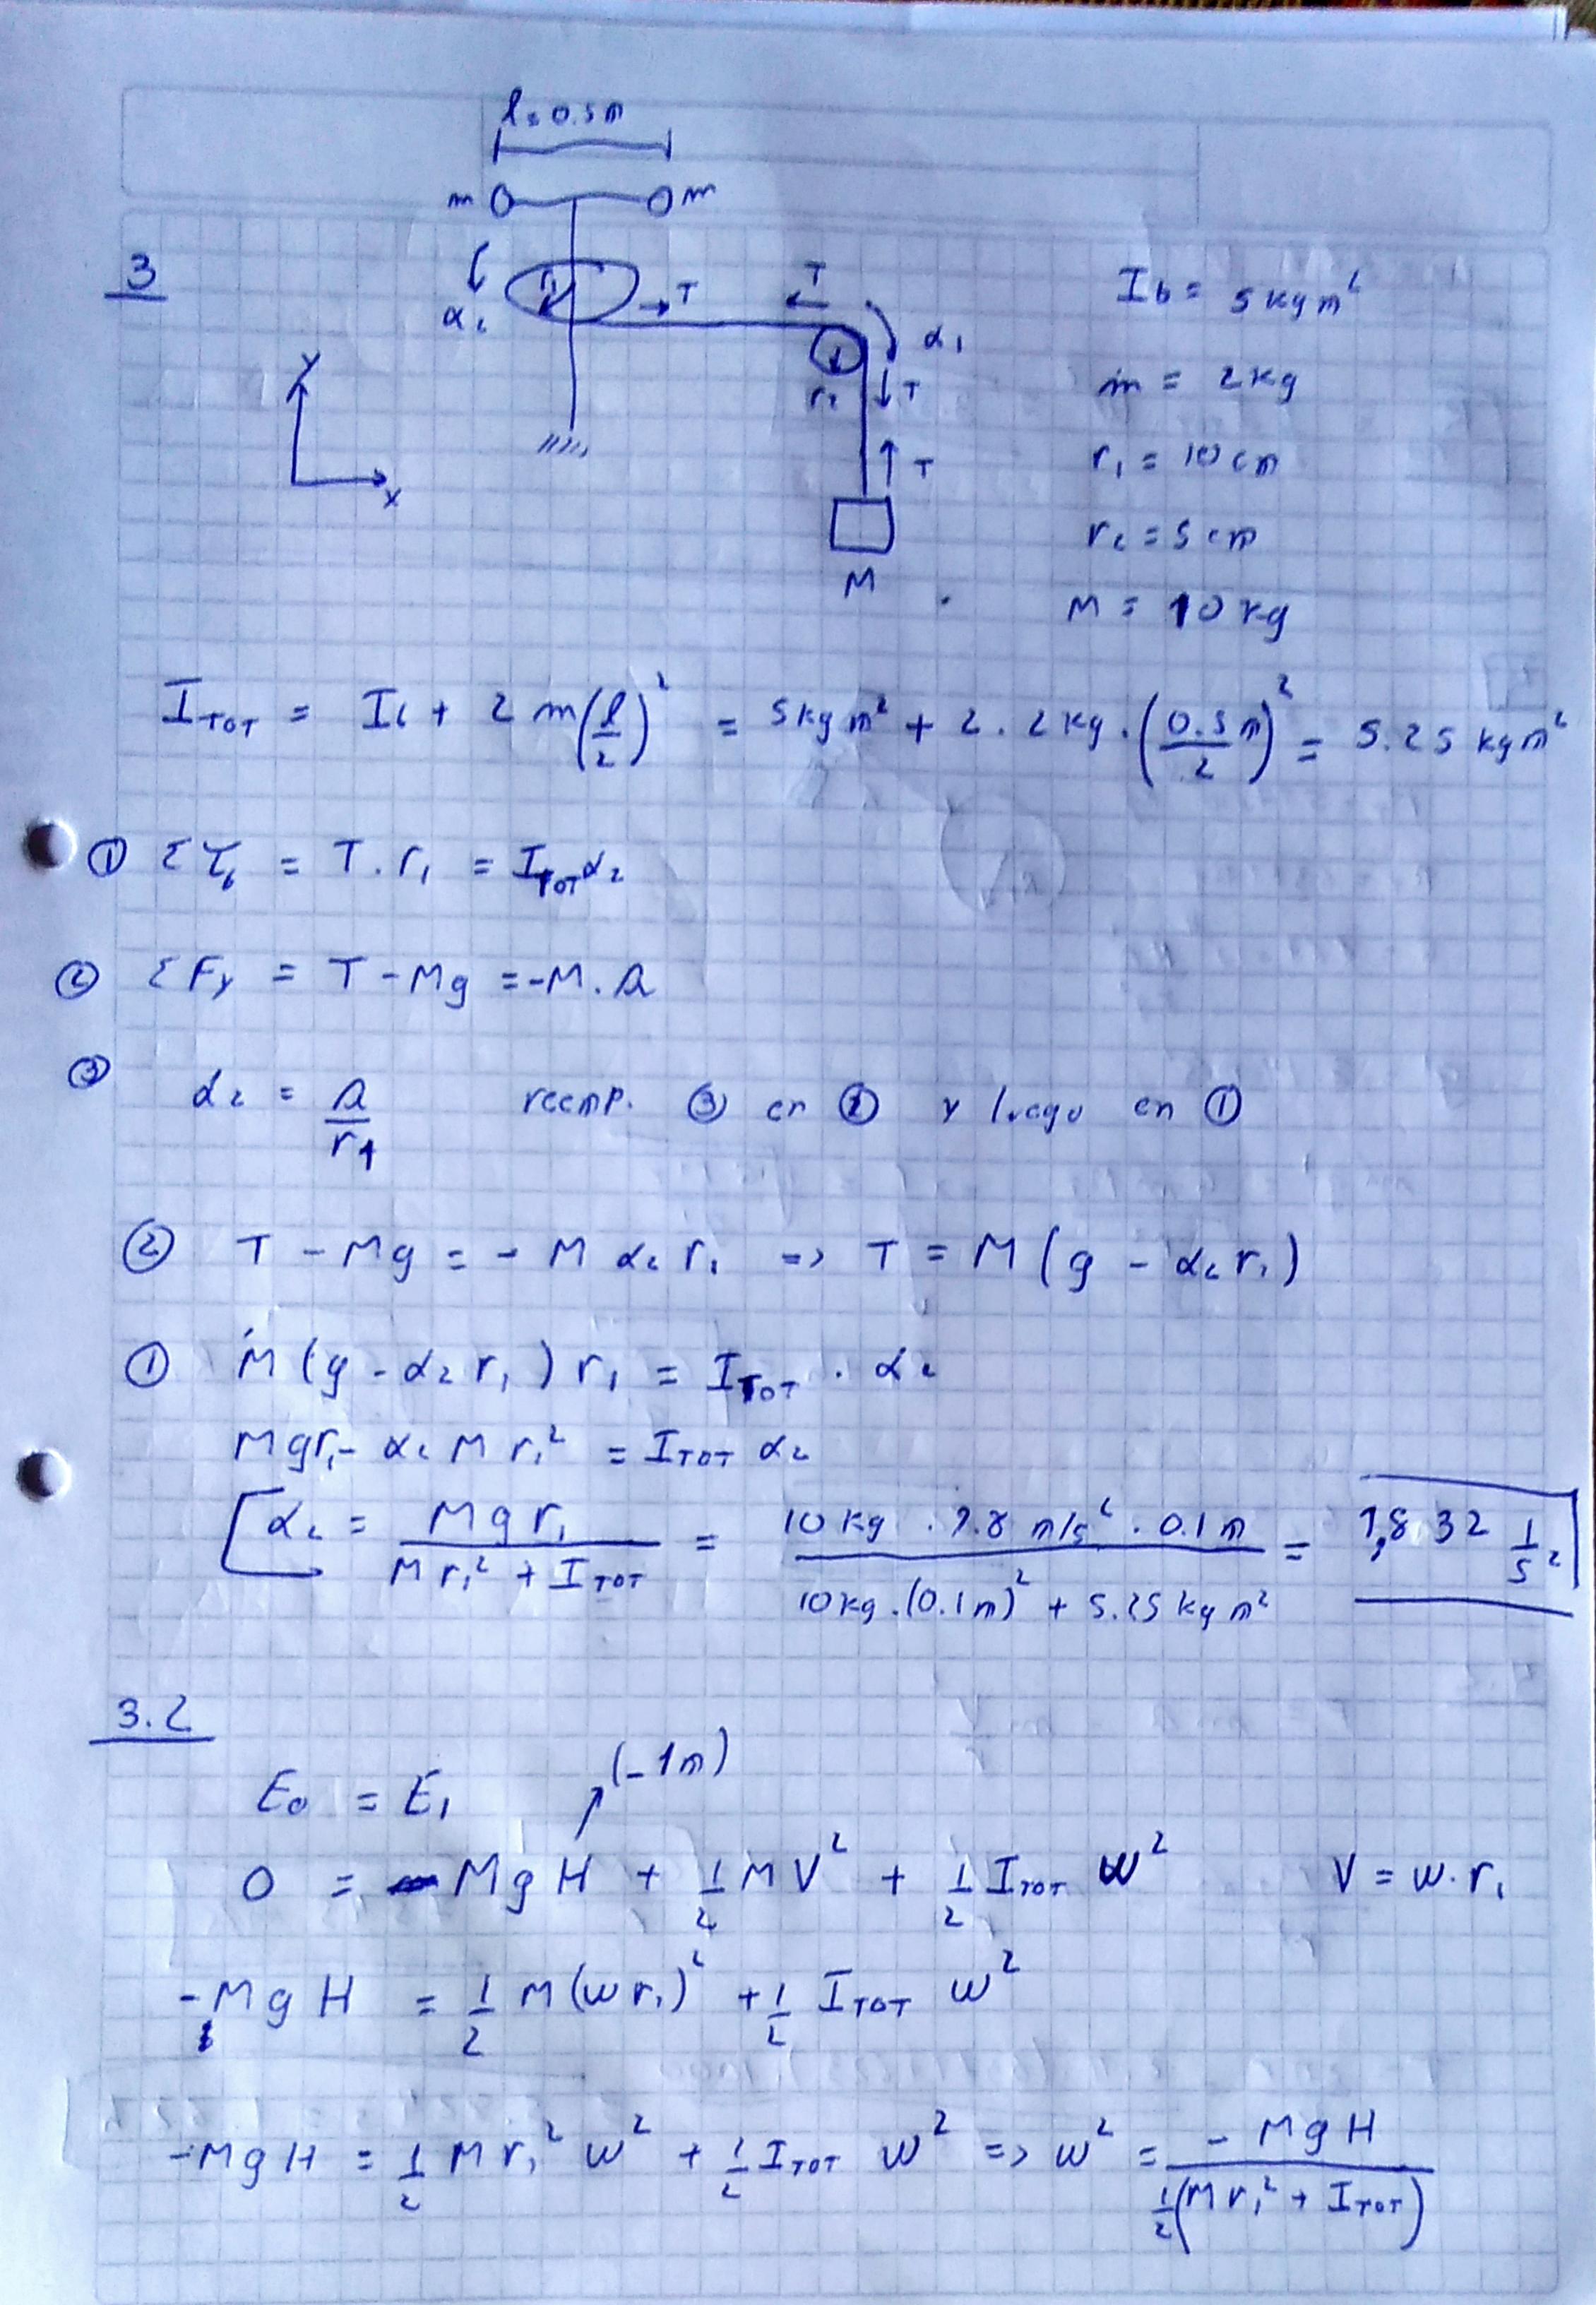 l = 0.5m
m m
3
r1
α2
T
T
α1
r2
T
T
M
y
x
Ib = 5 kg m²
m = 2 kg
r1 = 10 cm
r2 = 5 cm
M = 10 kg
I_TOT = Ib + 2 m (l/2)² = 5 kg m² + 2 . 2 kg . (0.5 m/2)² = 5.25 kg m²
① Στb = T . r1 = I_TOT α2
② ΣFy = T - Mg = -M . a
③ α2 = a/r1 reemp. ③ en ② y luego en ①
② T - Mg = - M α2 r1 => T = M (g - α2 r1)
① M (g - α2 r1) r1 = I_TOT . α2
Mgr1 - α2 M r1² = I_TOT α2
α2 = M g r1 / (M r1² + I_TOT) = 10 kg . 9.8 m/s² . 0.1 m / (10 kg . (0.1 m)² + 5.25 kg m²) = 1,832 1/s²
3.2
E0 = E1
(-1m)
0 = MgH + 1/2 M V² + 1/2 I_TOT w² V = w . r1
- M g H = 1/2 M (w r1)² + 1/2 I_TOT w²
- M g H = 1/2 M r1² w² + 1/2 I_TOT w² => w² = - M g H / (1/2 (M r1² + I_TOT))